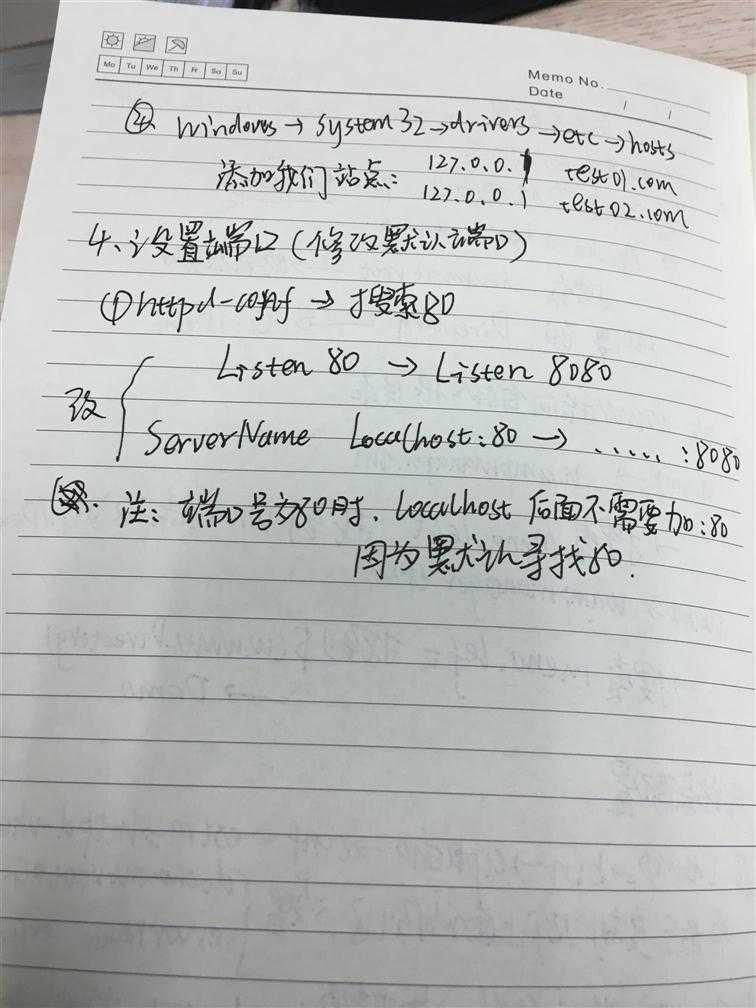 Mo Tu We Th Fr Sa Su
Memo No.
Date / /
④ windows → System 32 → drivers → etc → hosts
添加我们站点: 127.0.0.1 test01.com
127.0.0.1 test02.com
4、设置端口(修改默认端口)
① httpd-conf → 搜索80
改 { Listen 80 → Listen 8080
ServerName Localhost:80 → ......:8080
注: 端口号为80时, Localhost 后面不需要加:80
因为默认寻找80.